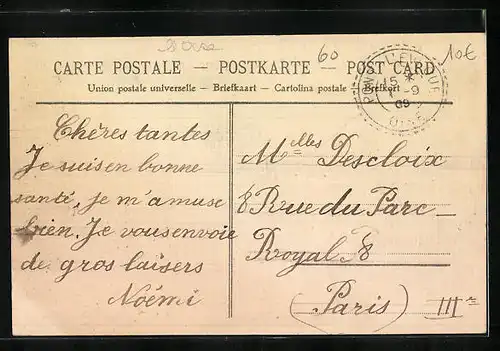 Oise
60
10€
CARTE POSTALE — POSTKARTE — POST CARD
Union postale universelle — Briefkaart — Cartolina postale — Brefkort
15 *
-9
09
OISE
Chères tantes
Je suis en bonne
santé, je m'amuse
bien. Je vous envoie
de gros baisers
Noémi
Melles Descloix
8 Rue du Parc-
Royal 8
(Paris) IIIe